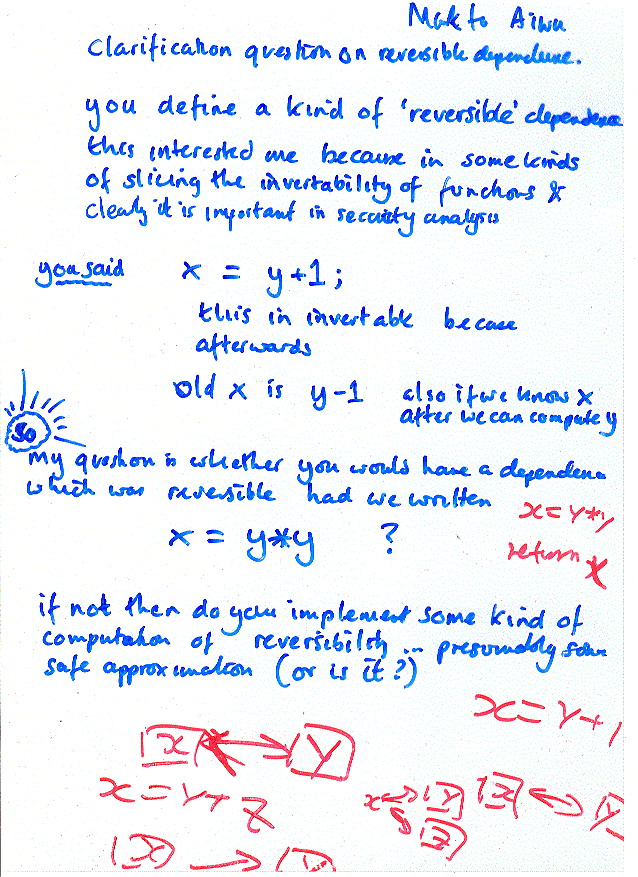 Mark to Aiwu
Clarification question on reversible dependence.
you define a kind of 'reversible' dependence
this interested me because in some kinds
of slicing the invertability of functions &
clearly it is important in security analysis
you said x = y+1;
this in invertable becase
afterwards
old x is y-1 also if we know x
after we can compute y
So
My question is whether you would have a dependence
which was reversible had we written
x = y*y ?
x = y*y
return x
if not then do you implement some kind of
computation of reversibility ... presumably some
safe approximation (or is it?)
x = y+1
x y
x = y + z
x y x y
z
x y